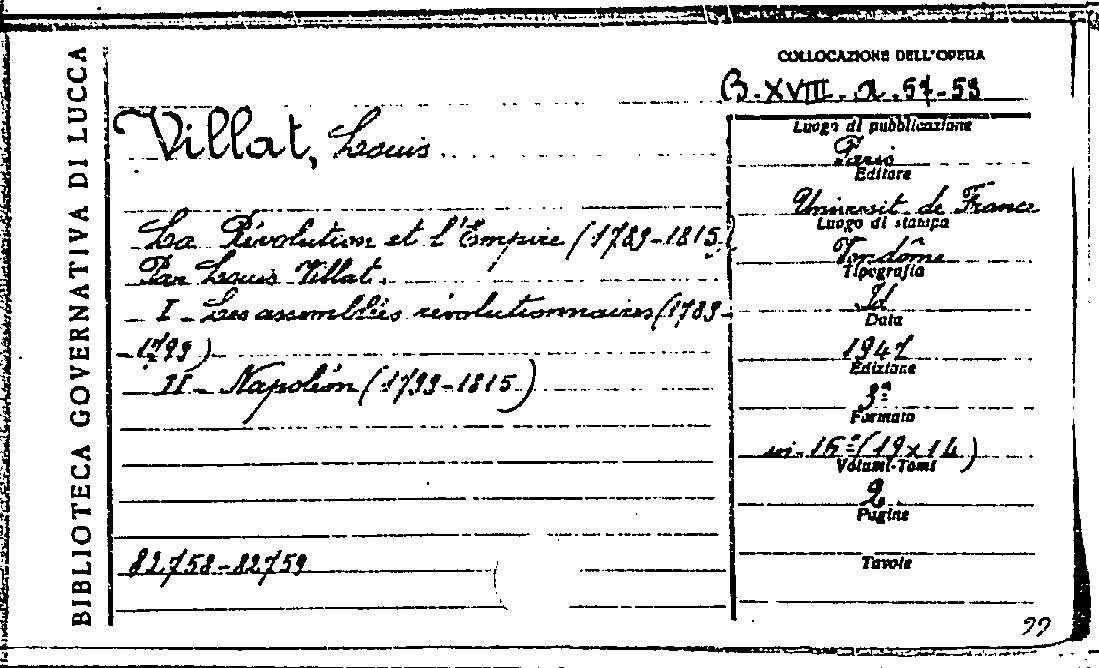 BIBLIOTECA GOVERNATIVA DI LUCCA
COLLOCAZIONE DELL'OPERA
B. XVIII. a. 57-59
Villat, Louis
La Révolution et l'Empire (1789-1815)
Par Louis Villat.
I - Les assemblées révolutionnaires (1789-
-1799)
II - Napoléon (1799-1815)
82758-82759
Luogo di pubblicazione
Paris
Editore
Universit. de France
Luogo di stampa
Vendôme
Tipografia
Id
Data
1947
Edizione
3ª
Formato
in-16º (19x14)
Volumi-Tomi
2
Pagine
Tavole